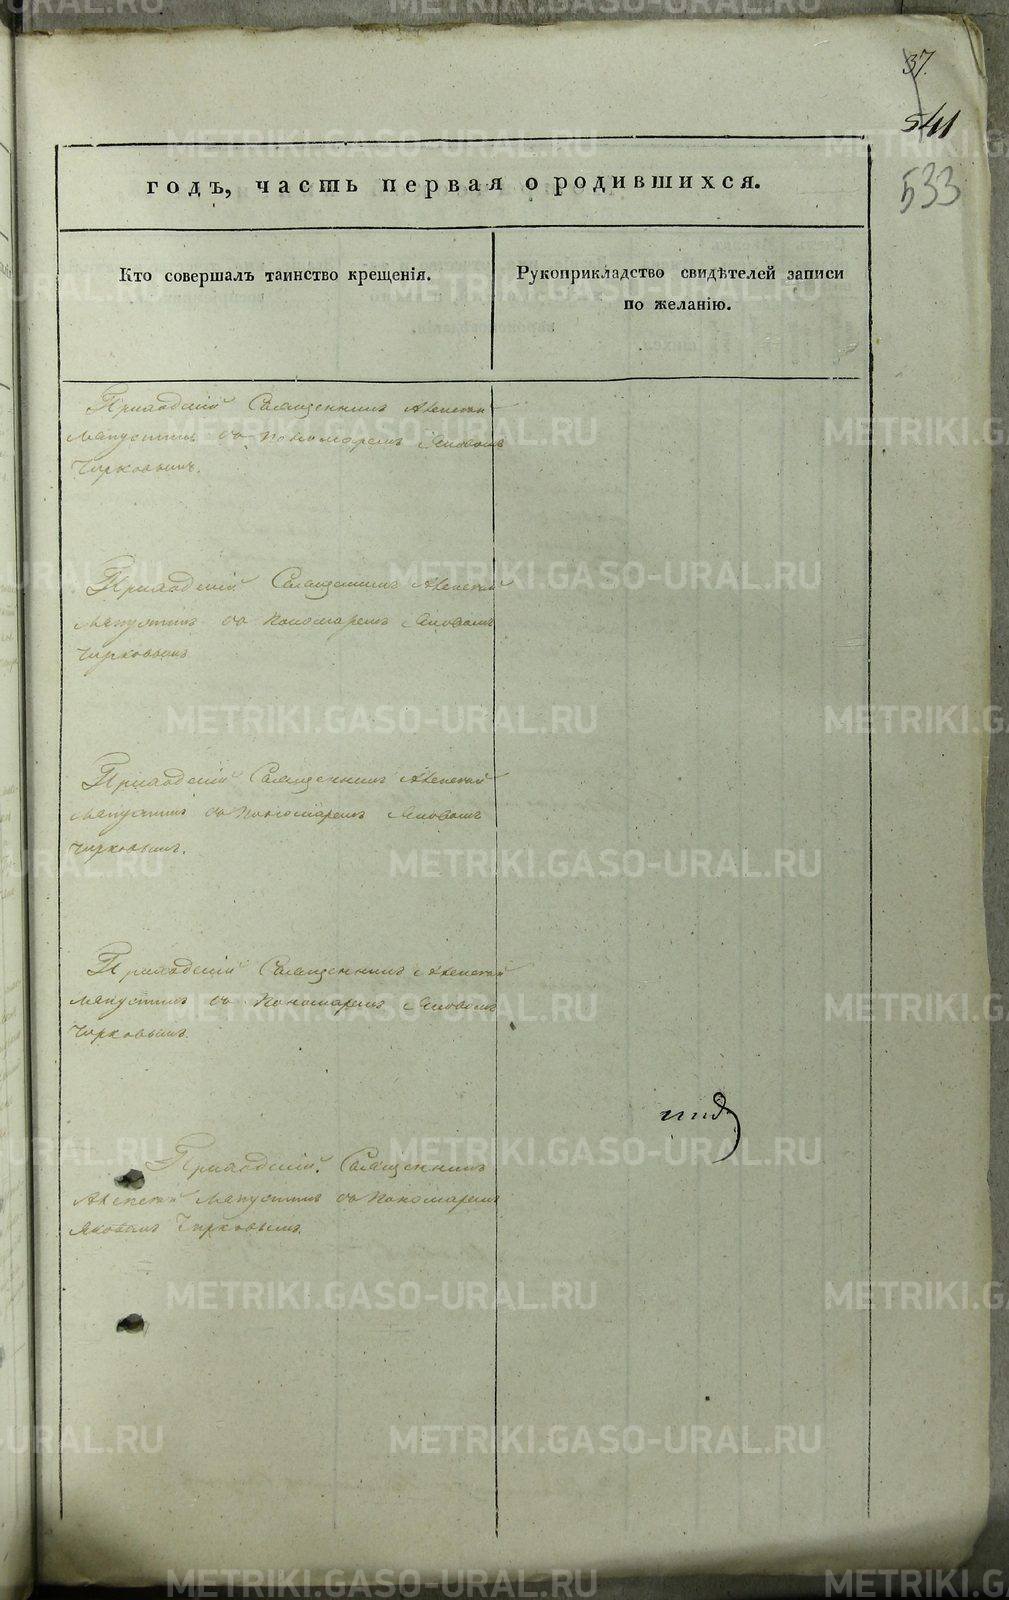 37.
541
533
годъ, часть первая о родившихся.
Кто совершалъ таинство крещенія.
Рукоприкладство свидѣтелей записи
по желанію.
Приходскій Священникъ Алексѣй
Мапустинъ съ Пономаремъ Яковомъ
Чирковымъ.
Приходскій Священникъ Алексѣй
Мапустинъ съ Пономаремъ Яковомъ
Чирковымъ
Приходскій Священникъ Алексѣй
Мапустинъ съ Пономаремъ Яковомъ
Чирковымъ.
Приходскій Священникъ Алексѣй
Мапустинъ съ Пономаремъ Яковомъ
Чирковымъ.
Приходскій Священникъ
Алексѣй Мапустинъ съ Пономаремъ
Яковомъ Чирковымъ.
METRIKI.GASO-URAL.RU